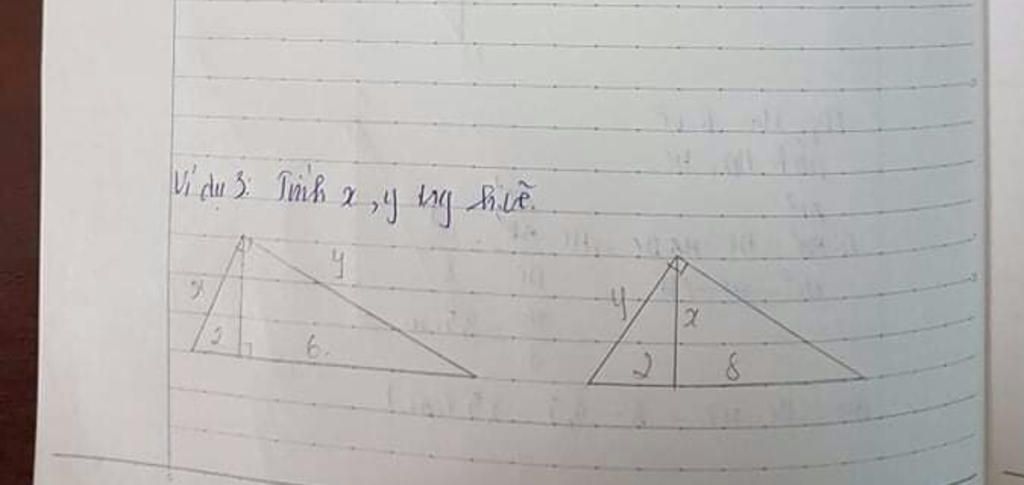 Ví dụ 3: Tính x, y trg h.vẽ.
x 2 6 y
y 2 x 8